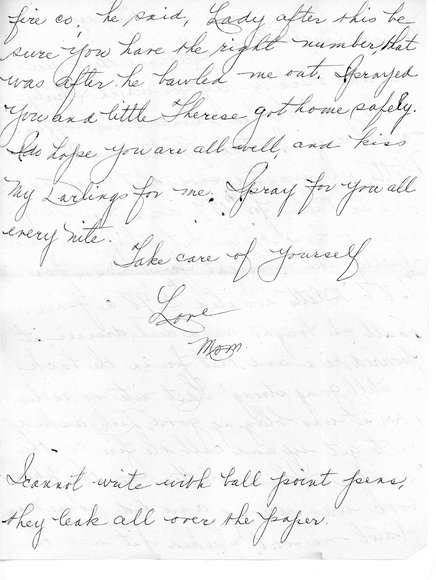 fire co, he said, Lady after this be
sure you have the right number, that
was after he bawled me out. Sprayed
you and little Therese got home safely.
I do hope you are all well, and kiss
my Darlings for me. Spray for you all
every nite.
Take care of yourself
Love
Mom.
I cannot write with ball point pens,
they leak all over the paper.